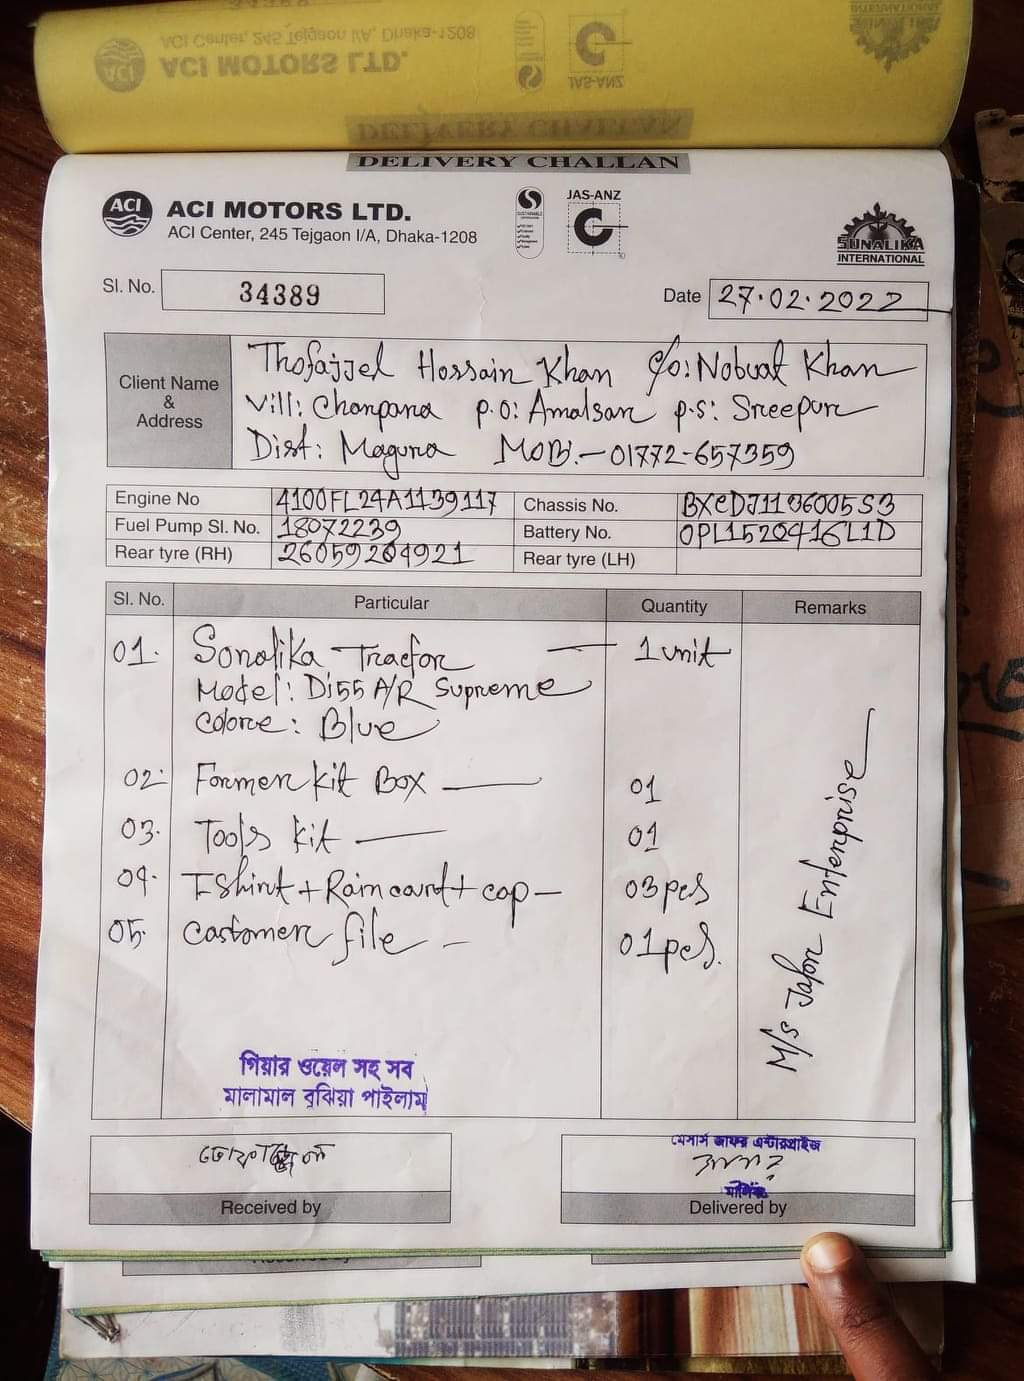 DELIVERY CHALLAN
ACI
ACI MOTORS LTD.
ACI Center, 245 Tejgaon I/A, Dhaka-1208
JAS-ANZ
SUNALIKA
INTERNATIONAL
Sl. No. 34389
Date 27.02.2022
Client Name & Address
Thofajjel Hossain Khan C/o: Nobuat Khan
Vill: Chonpara p.o: Amalsar p.s: Sreepur
Dist: Magura MOB:-01772-657359
Engine No 4100FL24A1139117 Chassis No. BXCDJ1136005S3
Fuel Pump Sl. No. 18072239 Battery No. 0PL1520416L1D
Rear tyre (RH) 26059204921 Rear tyre (LH)
Sl. No. Particular Quantity Remarks
01. Sonalika Tractor — 1 unit
Model: Di55 A/R Supreme
Colore: Blue
02. Farmer kit Box — 01
03. Tools kit — 01
04. T-Shirt + Rain court + cap — 03 pcs
05. Customer file - 01 pcs.
M/s Jafor Enterprise
গিয়ার ওয়েল সহ সব
মালামাল বুঝিয়া পাইলাম
মেসার্স জাফর এন্টারপ্রাইজ
মালিক
Received by
Delivered by